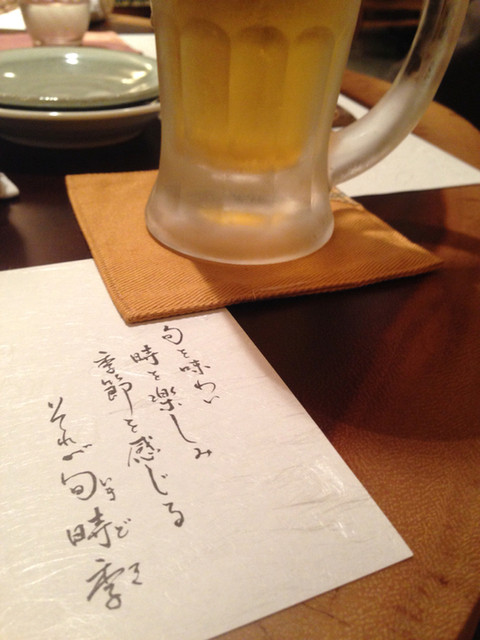 旬を味わい
時を楽しみ
季節を感じる
それが旬時季
いまどき